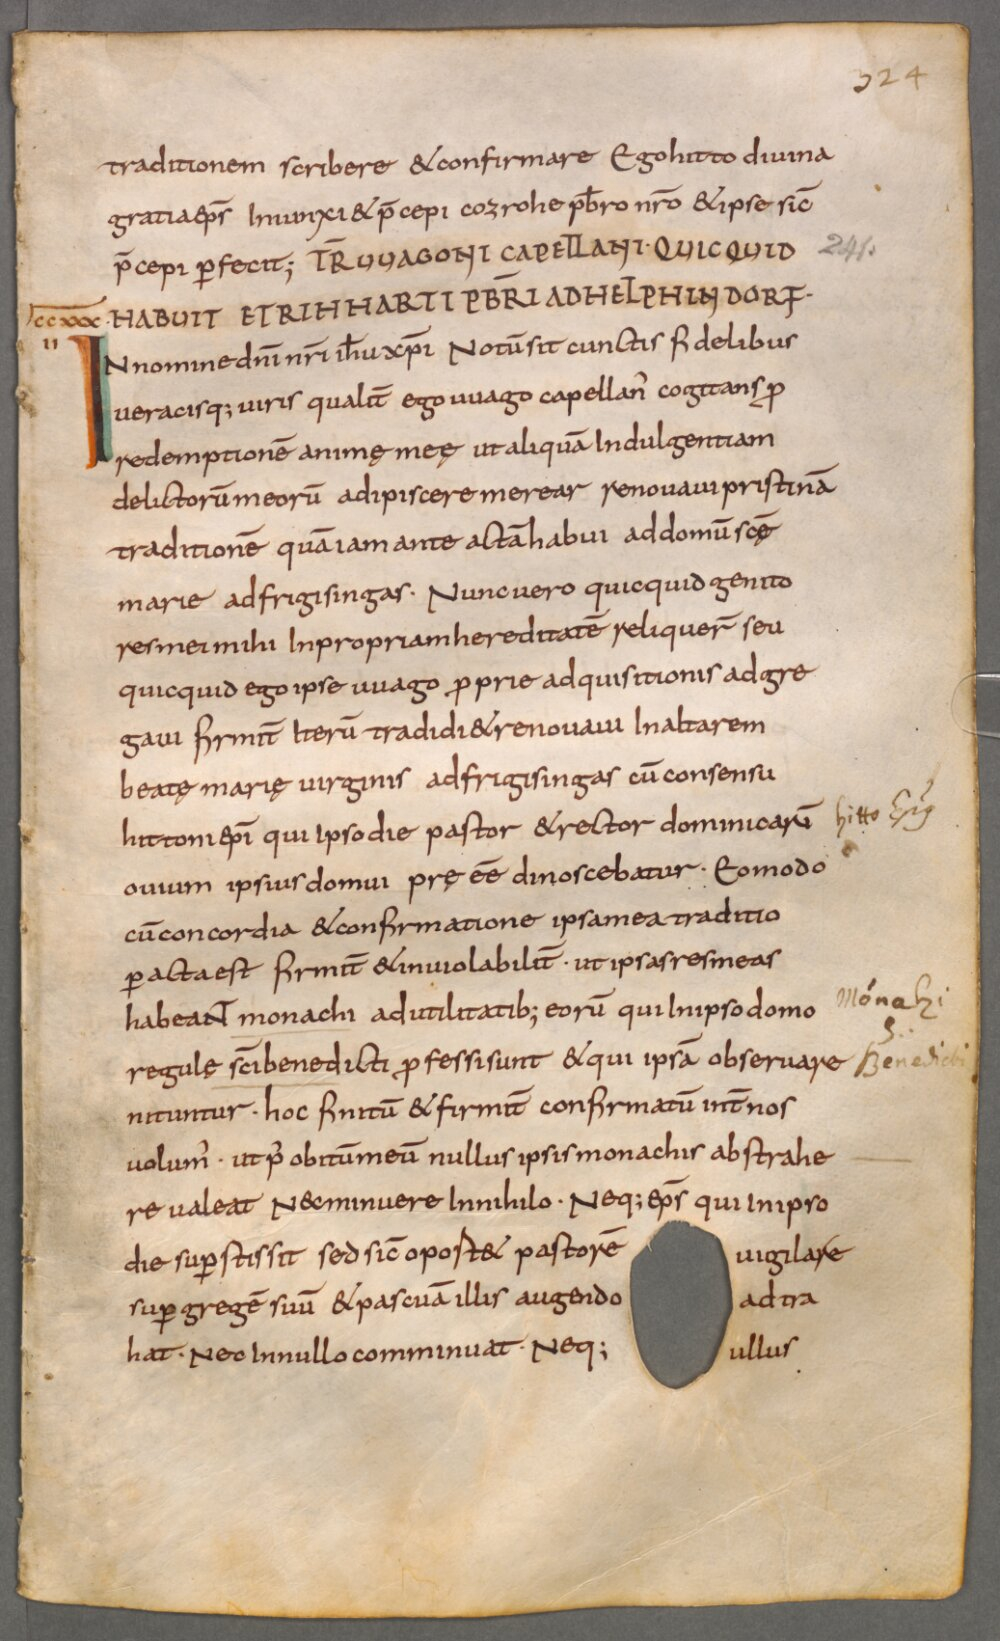 324
traditionem scribere &confirmare Egohitto diuina
gratia ep̄s Iniunxi & p̄cepi cozrohe pb̄ro nr̄o & ipse sic̄
p̄cepi ꝑfecit; TR̄ UUAGONI CAPELLANI· QUICQUID
241.
HABUIT ET RIHHARTI PB̄RI AD HELPHINDORF·
ccxxx
II
IN nomine dn̄i nr̄i ih̄u xp̄i Notū sit cunctis fidelibus
ueracisq; uiris qualit̄ ego uuago capellan᾽ cogitans ꝓ
redemptionē animę meę ut aliquā Indulgentiam
delictorū meorū adipiscere merear renouaui pristinā
traditionē quā iam ante actā habui ad domū sc̄ę
marie ad frigisingas· Nunc uero quicquid genito
res mei mihi In propriam hereditatē reliquer̄ seu
quicquid ego ipse uuago ꝓprie adquisitionis adgre
gaui firmit̄ Iterū tradidi & renouaui In altarem
beatę marię uirginis ad frigisingas cū consensu
hittoni ep̄i qui Ipso die pastor & rector dominicarū
hitto Ep̄s
ouium ipsius domui pręeē dinoscebatur· Eo modo
cū concordia & confirmatione ipsa mea traditio
ꝑacta est firmit̄ & inuiolabilit̄· ut ipsas res meas
habeant monachi ad utilitatib; eorū qui In ipso domo
Monahi
S.
regulę sc̄i benedicti ꝓfessi sunt & qui ipsā obseruare
Benedicti
nituntur· hoc finitū & firmit̄ confirmatū int̄ nos
uolum᾽· ut p᾽ obitū meū nullus ipsis monachis abstrahe
re ualeat Nec minuere In nihilo· Neq; ep̄s qui In ipso
die suꝑstis sit sed sic̄ oport& pastorē uigilare
suꝑ gregē suū & pascuā illis augendo ad tra
hat· Nec In nullo comminuat· Neq; ullus